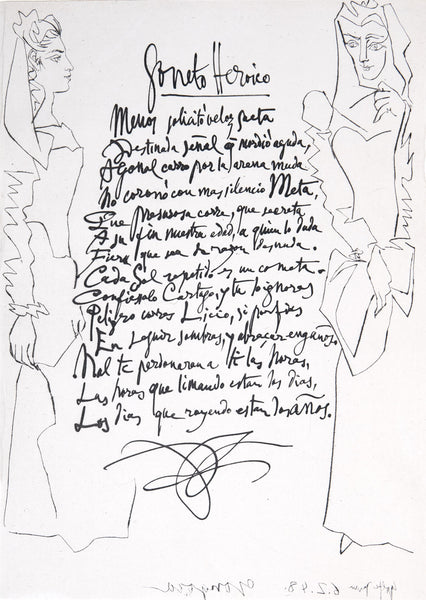 Soneto Heroico
Menos solicitó veloz saeta
Destinada señal q̃ mordió aguda,
Agonal carro por la arena muda
No coronó con mas silencio Meta,
Que presurosa corre, que secreta
A su fin nuestra edad, a quien lo duda
Fiera que sea de razon desnuda.
Cada Sol repetido es un cometa.
Confiesalo Cartago, y tu lo ignoras
Peligro corres Licio, si porfias
En seguir sombras, y abraçar engaños,
Mal te perdonaran a ti las horas,
Las horas que limando estan los dias,
Los dias que royendo estan los años.
6.2.48. Góngora